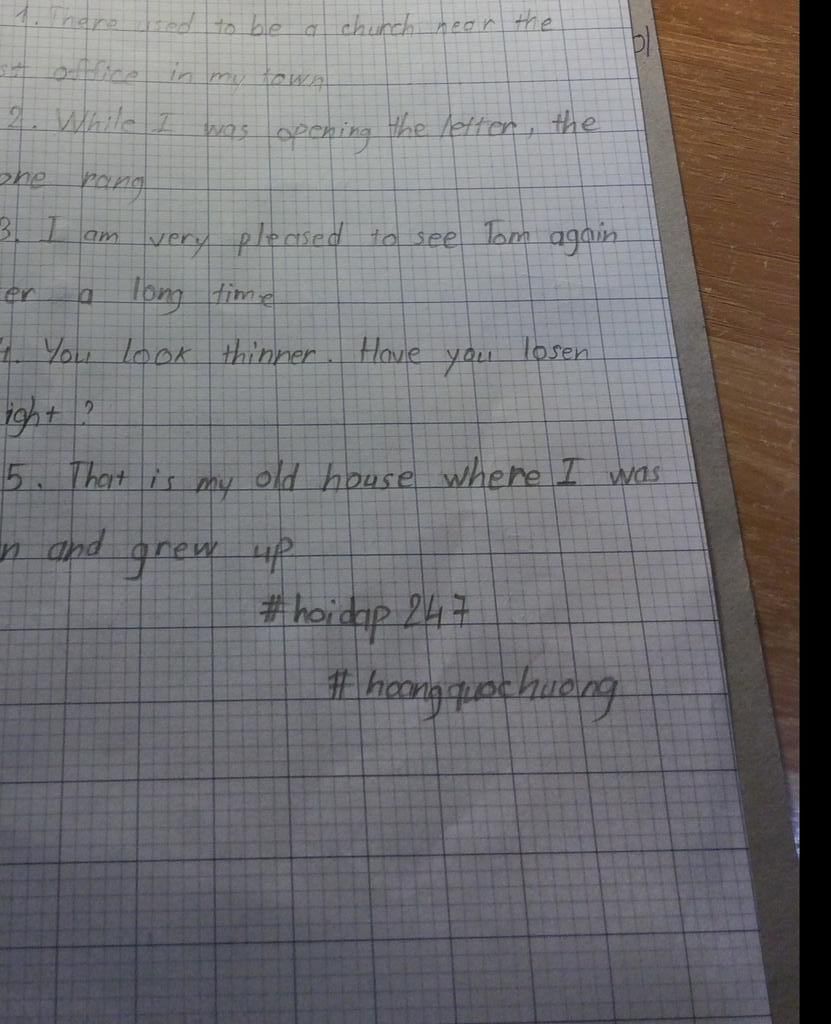 1. There used to be a church near the
st office in my town
2. While I was opening the letter, the
one rang
3. I am very pleased to see Tom again
er a long time
4. You look thinner. Have you losen
ight ?
5. That is my old house where I was
n and grew up
#hoidap 247
# hoangquochuong